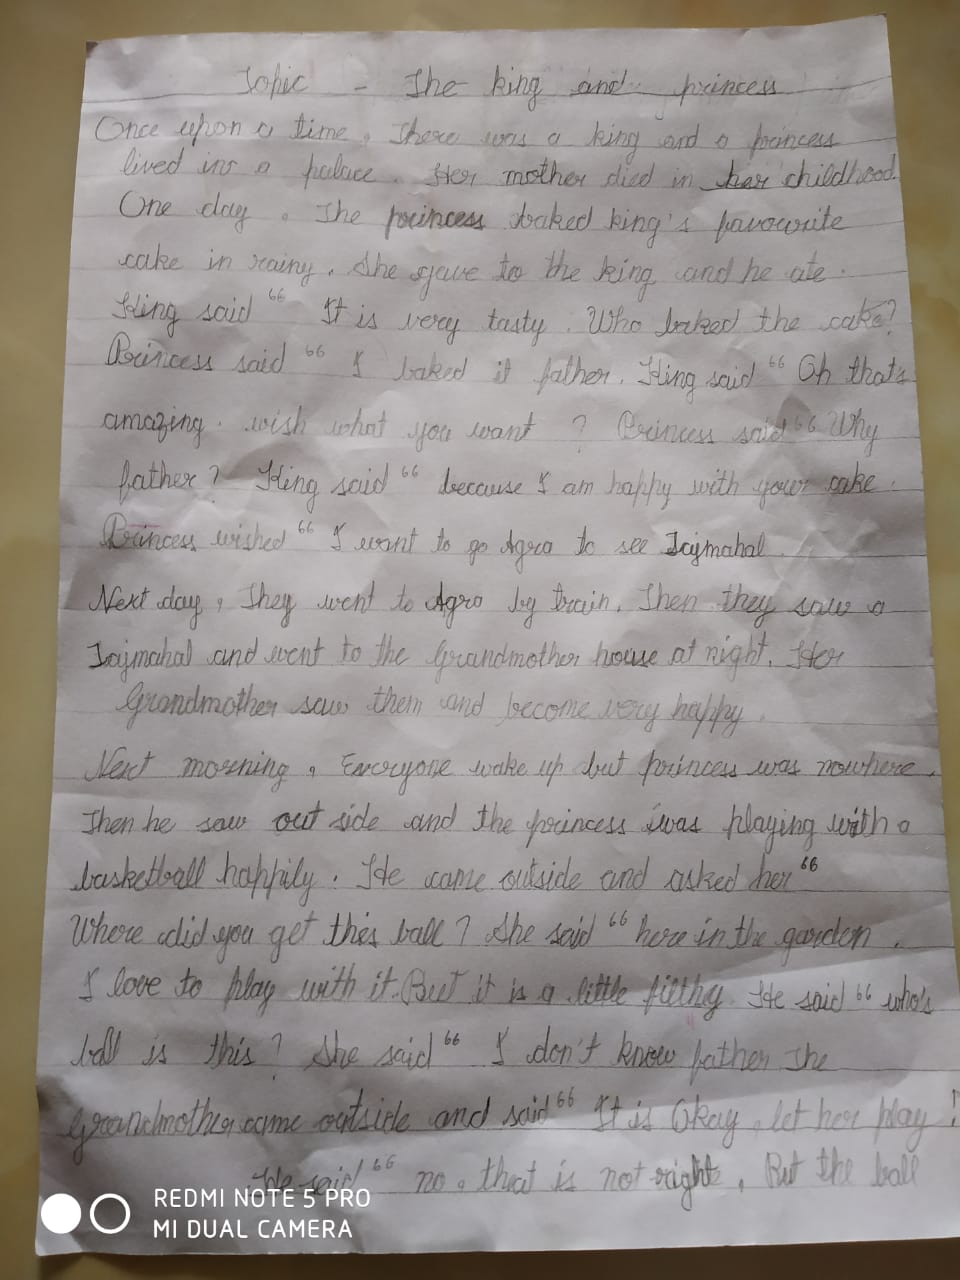 Topic - The king and princess
Once upon a time, There was a king and a princess
lived in a palace. Her mother died in her childhood.
One day, The princess baked king's favourite
cake in rainy. She gave to the king and he ate.
King said “ It is very tasty. Who baked the cake?
Princess said “ I baked it father. King said “ Oh that's
amazing. wish what you want ? Princess said “ Why
father? King said “ because I am happy with your cake.
Princess wished “ I want to go Agra to see Tajmahal.
Next day, They went to Agra by train. Then they saw a
Tajmahal and went to the Grandmother house at night. Her
Grandmother saw them and become very happy.
Next morning, Everyone wake up but princess was nowhere.
Then he saw out side and the princess was playing with a
basketball happily. He came outside and asked her “
Where did you get this ball? She said “ here in the garden.
I love to play with it. But it is a little filthy. He said “ who's
ball is this? She said “ I don't know father The
Grandmother came outside and said “ It is Okay, let her play!
He said “ no, that is not right, But the ball
REDMI NOTE 5 PRO
MI DUAL CAMERA